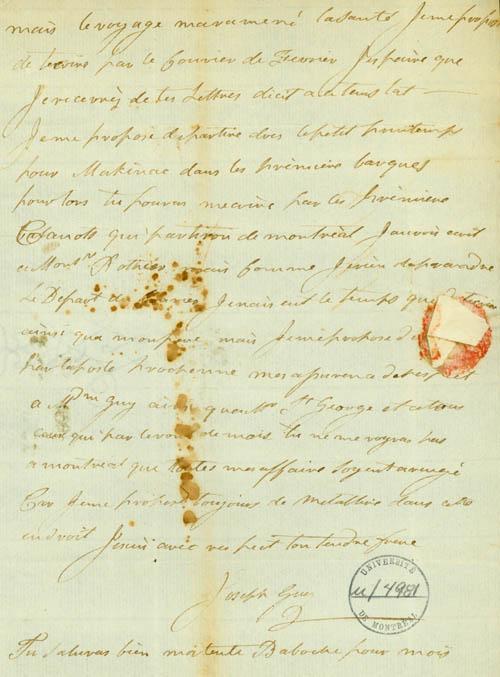 mais le voyage mara mené la santé Jeme propose
de tecrire par le Courier de Fevrier Jespaire que
Jerecevrès de tes Lettres dicit a ce tems lat —
Jeme propose de partire dois le petit printemps
pour Makinac dans les premiere barques
pour lors tu pouras mecrire par les premiere
Canots qui partiron de montréal Jaurois ecrit
a Mons.r Rotier mais comme Je viens daprandre
Le Depart de Jenais eut le temps que
ainsi que mon pere mais Jeme propose
par la poste prochenne mes asurence de respet
a M.m Guy ainsi que Mr St George et a tous
ceux qui parleront de mois tu ne me voyras pas
a montréal que toutes mes affaire soyent arengé
Car Jeme propose toujours de metablire dans cette
endroit Jesuis avec respect ton tendre frere
Joseph Guy
UNIVERSITÉ
U/4981
DE MONTRÉAL
Tu saluras bien ma tente Baboche pour mois